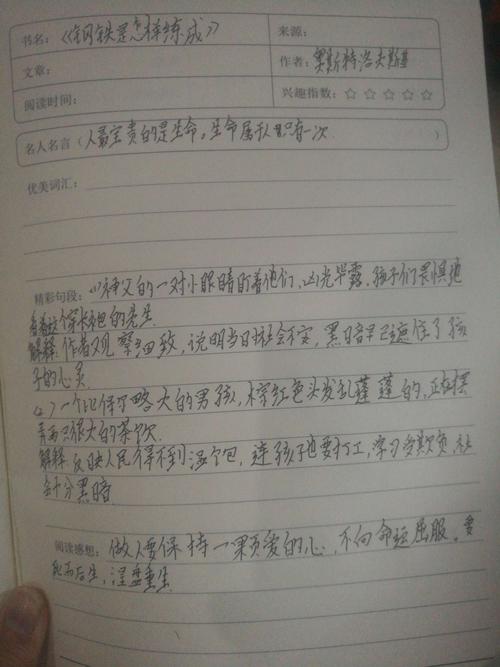 书名：《钢铁是怎样练成》
来源：
文章：
作者：奥斯特洛夫斯基
阅读时间：
兴趣指数：☆☆☆☆☆
名人名言（人最宝贵的是生命。生命属于人只有一次 ）
优美词汇：
精彩句段：(1)神父的一对小眼睛盯着他们，凶光毕露，孩子们畏惧地
看着这个穿长袍的先生
解释：作者观察细致，说明当日社会不安，黑暗早已遮住了孩
子的心灵
(2)一个比保尔略大的男孩，棕红色头发乱蓬蓬的，正在摆
弄两只很大的茶炊
解释 反映人民得不到温饱，连孩子也要打工，
会十分黑暗
阅读感想：做人要保持一颗爱的心，不向命运屈服。要
死而后生，涅盘重生